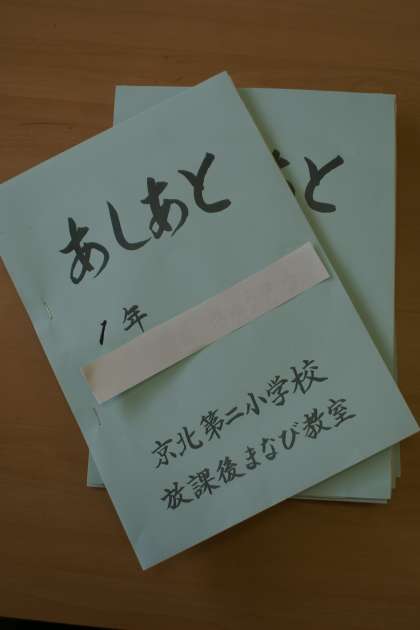 あしあと
1年
京北第二小学校
放課後まなび教室
と